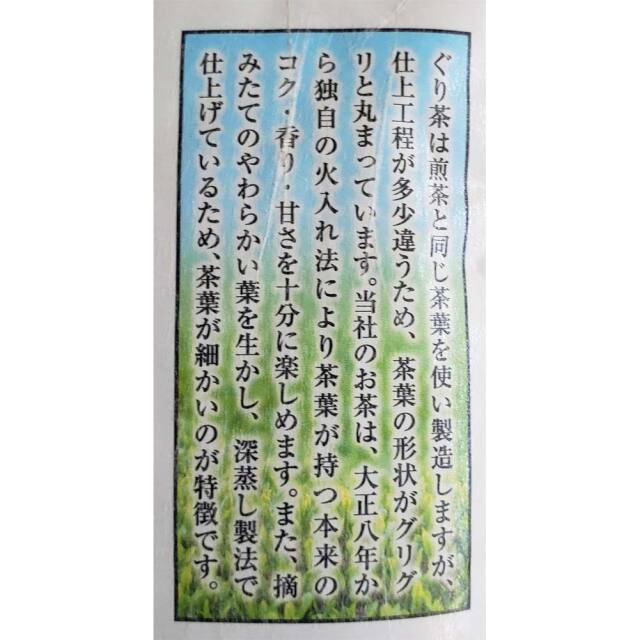 ぐり茶は煎茶と同じ茶葉を使い製造しますが、
仕上工程が多少違うため、茶葉の形状がグリグ
リと丸まっています。当社のお茶は、大正八年か
ら独自の火入れ法により茶葉が持つ本来の
コク・香り・甘さを十分に楽しめます。また、摘
みたてのやわらかい葉を生かし、深蒸し製法で
仕上げているため、茶葉が細かいのが特徴です。